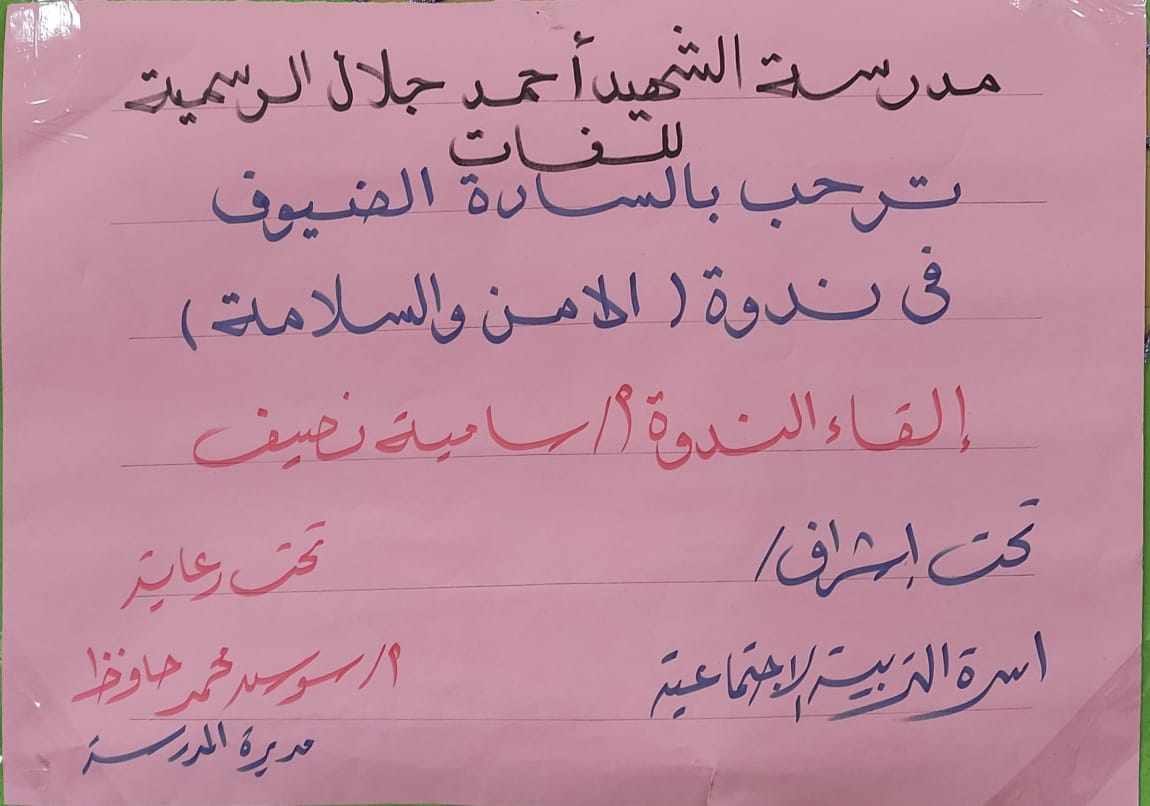 مدرسة الشهيد أحمد جلال الرسمية
للغات
ترحب بالسادة الضيوف
فى ندوة ( الامن والسلامة )
إلقاء الندوة م/ سامية نصيف
تحت إشراف/
تحت رعاية
اسرة التربية الإجتماعية
م/ سوسن محمد حافظ
مديرة المدرسة